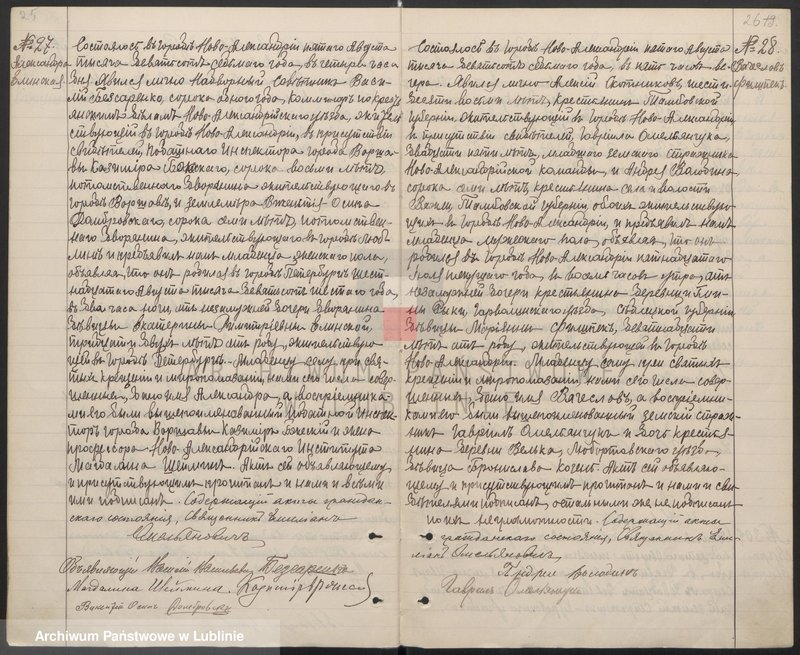 25
№ 27.
Александра
Елинская
Состоялось въ городѣ Ново-Александріи пятаго Августа
тысяча девятьсотъ седьмаго года, въ четыре часа
дня. Явился лично Надворный Совѣтникъ Васи-
лій Бондаренко, сорока одного года, Коммисаръ по кресть-
янскимъ дѣламъ Ново-Александрійскаго уѣзда, житель-
ствующій въ городѣ Ново-Александріи, въ присутствіи
свидѣтелей, Податнаго Инспектора города Варша-
вы Казиміра сорока восьми лѣтъ,
потомственнаго дворянина жительствующаго въ
городѣ Варшавѣ, и землемѣра Викентія Осипа
Домбровскаго, сорока семи лѣтъ, потомствен-
наго дворянина, жительствующаго въ городѣ Люб-
линѣ и предъявилъ намъ младенца женскаго пола,
объявляя, что онъ родился въ городѣ Петербургѣ шест-
надцатаго Августа тысяча девятьсотъ шестаго года,
въ два часа ночи, отъ незамужней дочери дворянина
дѣвицы Екатерины Димитріевны Елинской,
тридцати двухъ лѣтъ отъ роду, жительствую-
щей въ городѣ Петербургѣ. Младенцу сему при свя-
томъ крещеніи и миропомазаніи, нами сего числа совер-
шенныхъ, дано имя Александра, а воспріемника-
ми его были вышепоименованный Податной Инспек-
торъ города Варшавы Казиміръ и жена
профессора Ново-Александрійскаго Института
Магдалина Актъ сей объявляющему
и присутствующимъ прочитанъ и нами и всѣми
ими подписанъ. Содержащій акты граждан-
скаго состоянія, Священникъ Емиліанъ
Омельяновичъ
Объявляющій Василій Бондаренко
Магдалина Казиміръ
Викентій Осипъ Домбровскій
26
№ 28.
Вячеславъ
Состоялось въ городѣ Ново-Александріи пятаго Августа
тысяча девятьсотъ седьмаго года, въ пять часовъ ве-
чера. Явился лично Алексій Скотниковъ, шести-
десяти восьми лѣтъ, крестьянинъ Тамбовской
губерніи жительствующій въ городѣ Ново-Александріи
въ присутствіи свидѣтелей, Гавріила Омельянчука,
двадцати пяти лѣтъ, младшаго земскаго стражника
Ново-Александрійской команды, и Андрея Володина,
сорока семи лѣтъ, крестьянина села и волости
Тамбовской губерніи, обоихъ жительствую-
щихъ въ городѣ Ново-Александріи, и предъявилъ намъ
младенца мужескаго пола, объявляя, что онъ
родился въ городѣ Ново-Александріи пятнадцатаго
Іюля текущаго года, въ восемь часовъ утра, отъ
незамужней дочери крестьянина деревни
Гарволинскаго уѣзда, Сѣдлецкой губерніи
дѣвицы Маріанны девятнадцати
лѣтъ отъ роду, жительствующей въ городѣ
Ново-Александріи. Младенцу сему при святомъ
крещеніи и миропомазаніи, нами сего числа совер-
шенныхъ дано имя Вячеславъ, а воспріемни-
ками его были вышепоименованный земскій страж-
никъ Гавріилъ Омельянчукъ и дочь крестья-
нина деревни Велька, Любартовскаго уѣзда,
дѣвица Бронислава Актъ сей объявляю-
щему и присутствующимъ прочитанъ и нами и сви-
дѣтелями подписанъ, остальными же, не подписанъ
по ихъ неграмотности. Содержащій акты
гражданскаго состоянія, Священникъ Еми-
ліанъ Омельяновичъ
Андрей Володинъ
Гавріилъ Омельянчукъ
ARCHIWUM
Archiwum Państwowe w Lublinie